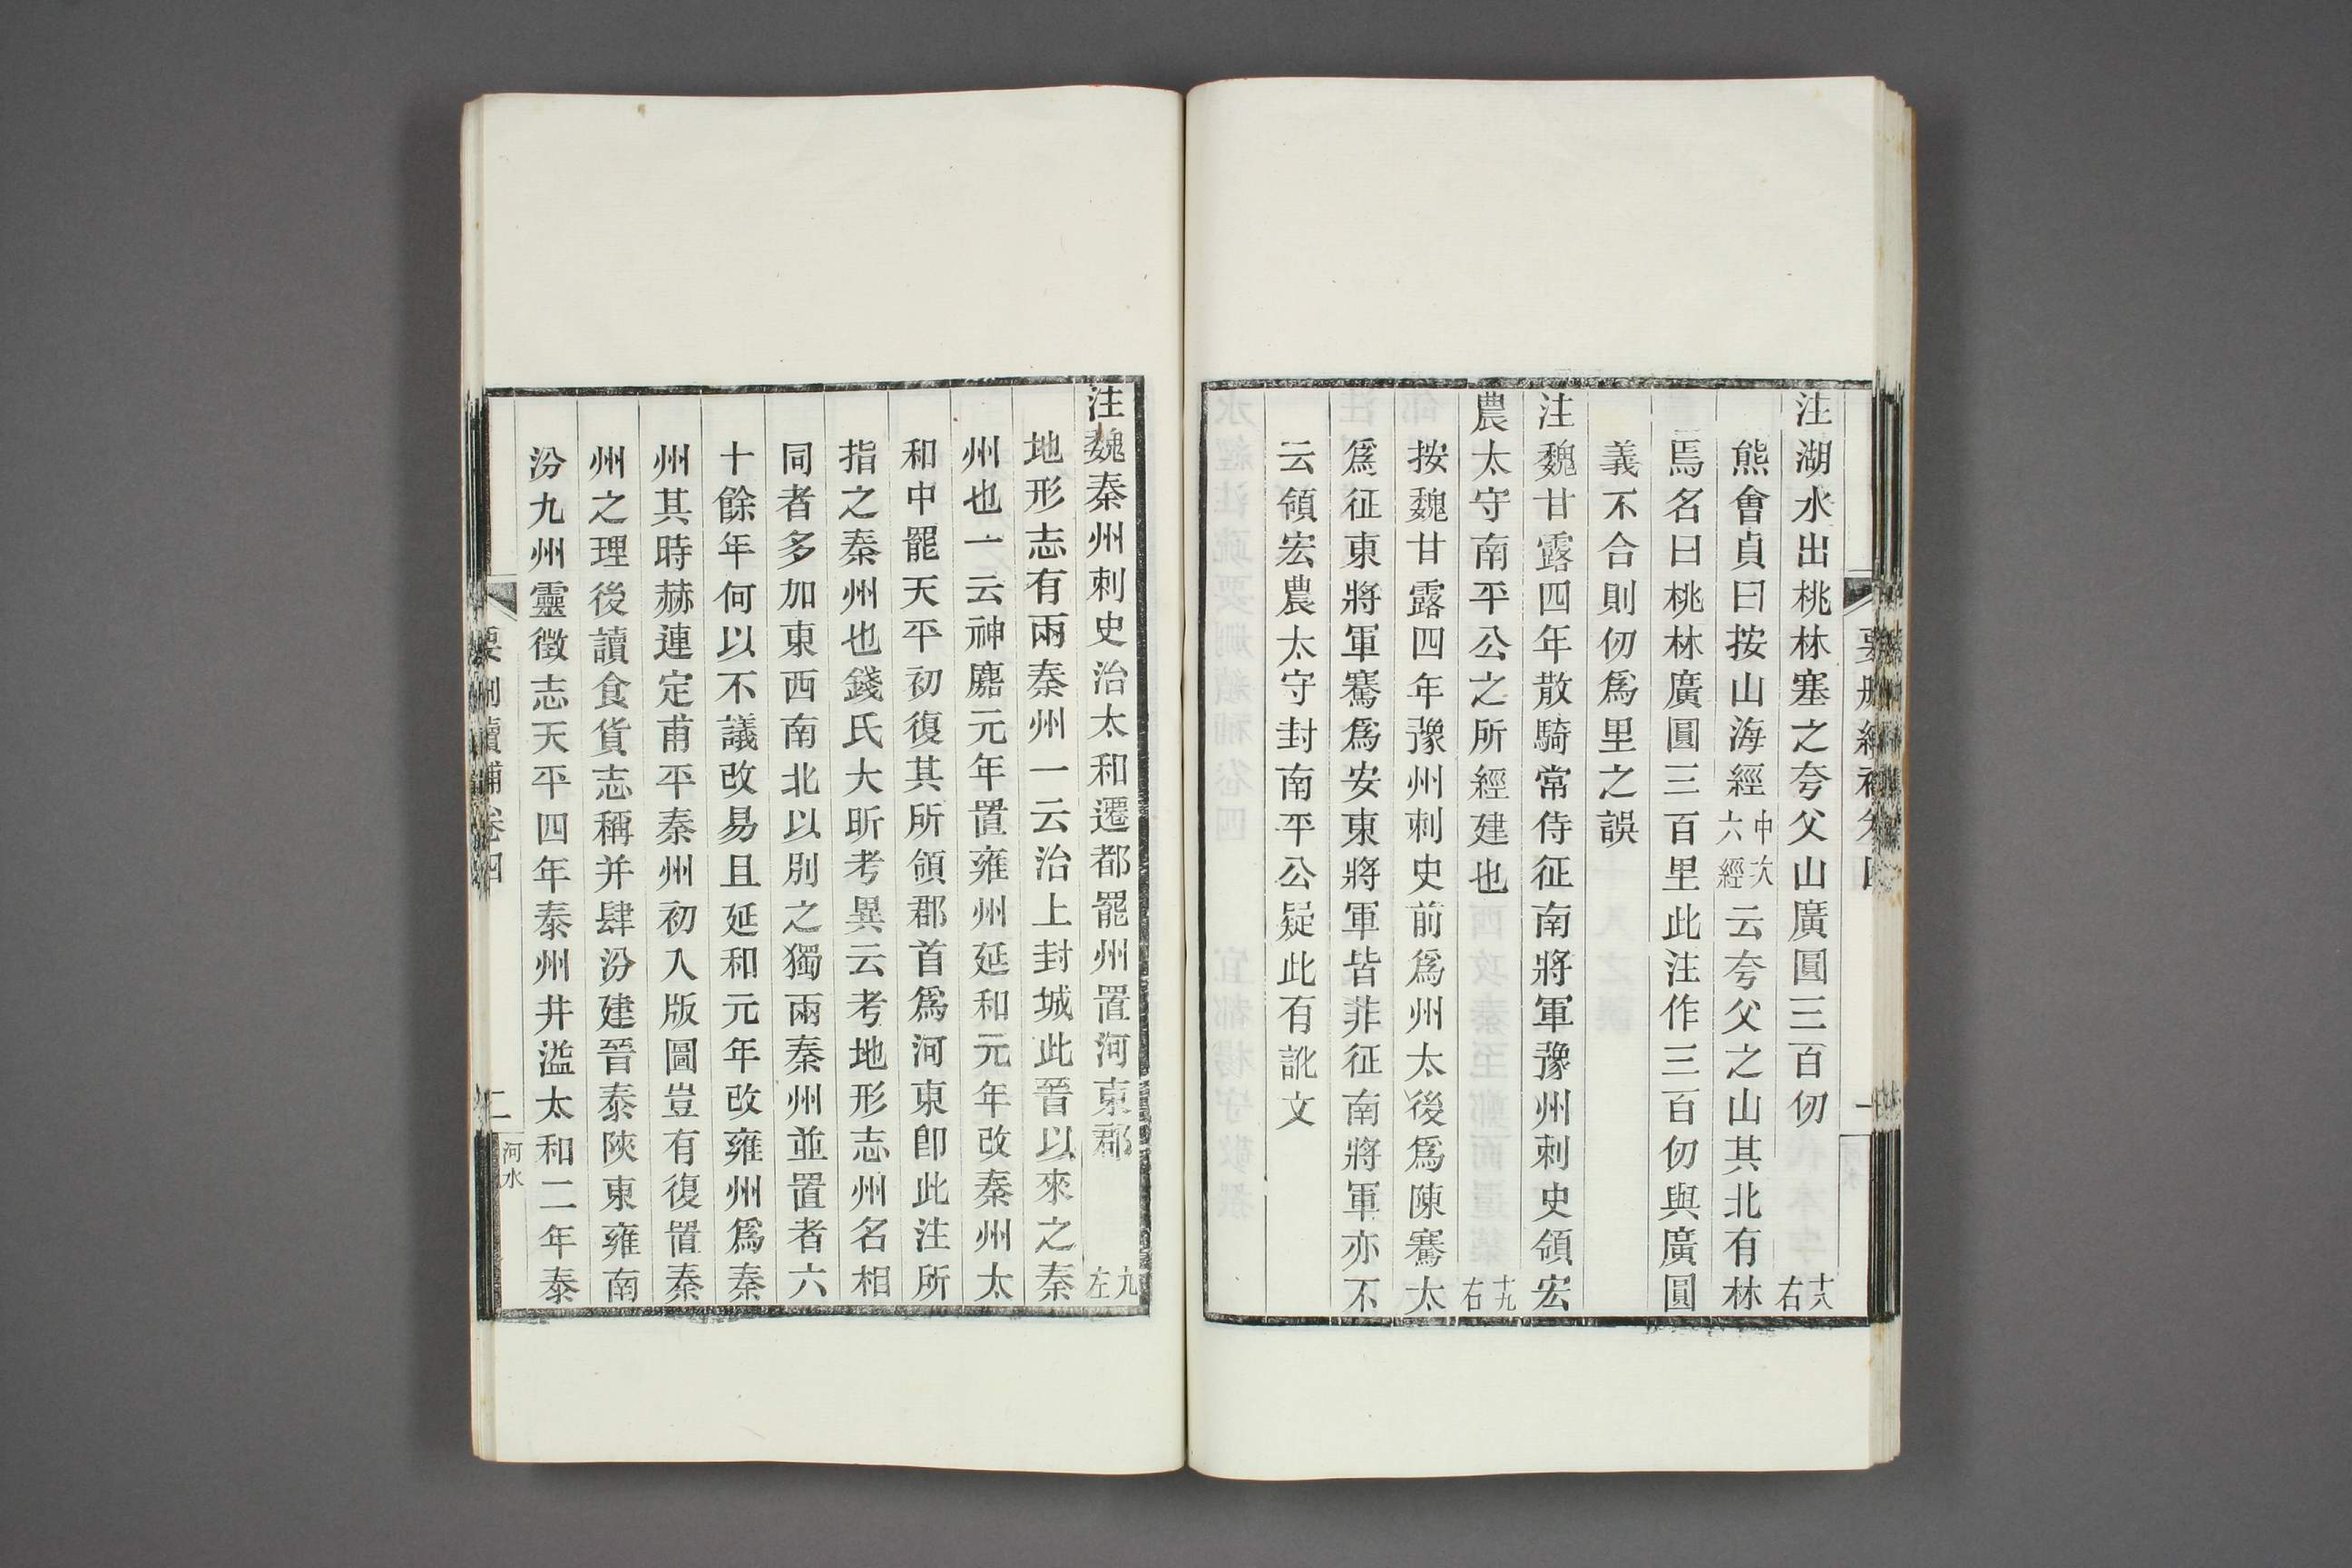 注湖水出桃林塞之夸父山廣圓三百仞 十八右
熊會貞曰按山海經中次六經云夸父之山其北有林
焉名曰桃林廣圓三百里此注作三百仞與廣圓
義不合則仞爲里之誤
注魏甘露四年散騎常侍征南將軍豫州刺史領宏
農太守南平公之所經建也 十九右
按魏甘露四年豫州刺史前爲州太後爲陳騫太
爲征東將軍騫爲安東將軍皆非征南將軍亦不
云領宏農太守封南平公疑此有訛文
注魏秦州刺史治太和遷都罷州置河東郡 九左
地形志有兩秦州一云治上封城此晉以來之秦
州也一云神䴥元年置雍州延和元年改秦州太
和中罷天平初復其所領郡首爲河東卽此注所
指之秦州也錢氏大昕考異云考地形志州名相
同者多加東西南北以別之獨兩秦州並置者六
十餘年何以不議改易且延和元年改雍州爲秦
州其時赫連定甫平秦州初入版圖豈有復置秦
州之理後讀食貨志稱并肆汾建晉泰陝東雍南
汾九州靈徵志天平四年泰州井溢太和二年泰
要刪續補卷四
二
河水